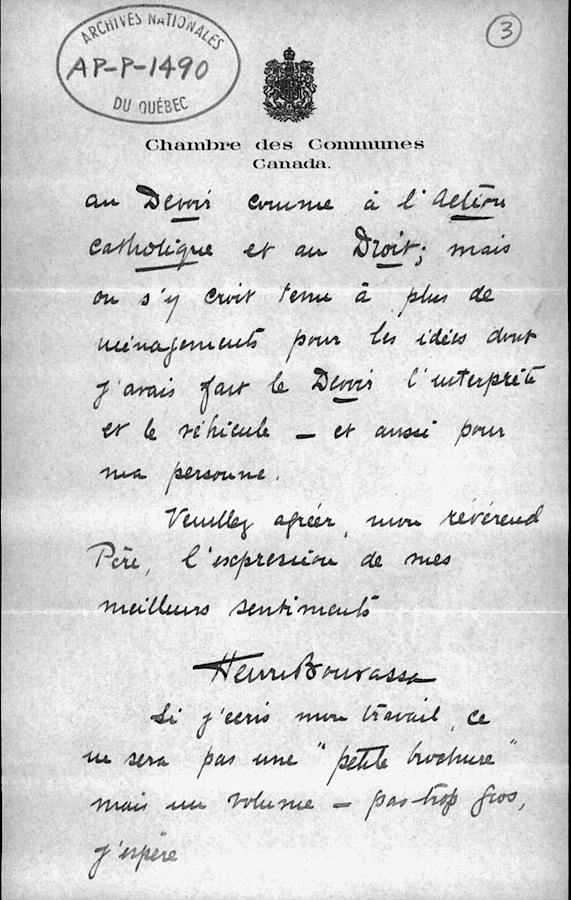 ARCHIVES NATIONALES
AP-P-1490
DU QUÉBEC
3
Chambre des Communes
Canada.
au Devoir comme à l'Action
catholique et au Droit; mais
on s'y croit tenu à plus de
ménagements pour les idées dont
j'avais fait le Devoir l'interprète
et le véhicule — et aussi pour
ma personne.
Veuillez agréer, mon révérend
Père, l'expression de mes
meilleurs sentiments
Henri Bourassa
Si j'écris mon travail, ce
ne sera pas une "petite brochure"
mais un volume — pas trop gros,
j'espère